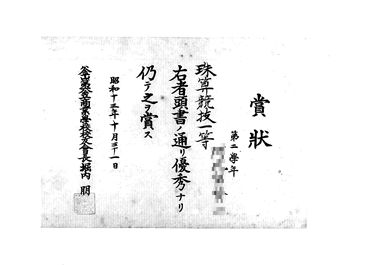 賞狀
第二學年
珠算競技一等
右者頭書ノ通リ優秀ナリ
仍テ之ヲ賞ス
昭和十三年十月三十一日
公立商業學校校友會長堀内 朋